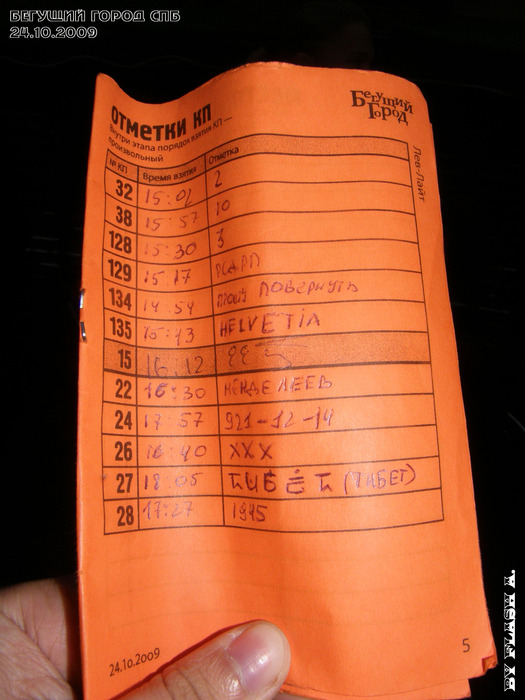 БЕГУЩИЙ ГОРОД СПБ
24.10.2009
Бегущий
Город
ОТМЕТКИ КП
Внутри этапа порядок взятия КП —
произвольный
Лев-Лайт
№ КП Время взятия Отметка
32 15:02 2
38 15:57 10
128 15:30 3
129 15:17 РСДРП
134 14:54 ПРОШУ ПОВЕРНУТЬ
135 15:43 HELVETIA
15 16:12
22 16:30 МЕНДЕЛЕЕВ
24 17:57 921-12-14
26 16:40 XXX
27 18:05 (ТИБЕТ)
28 17:27 1915
24.10.2009
5
BY FLASH A.